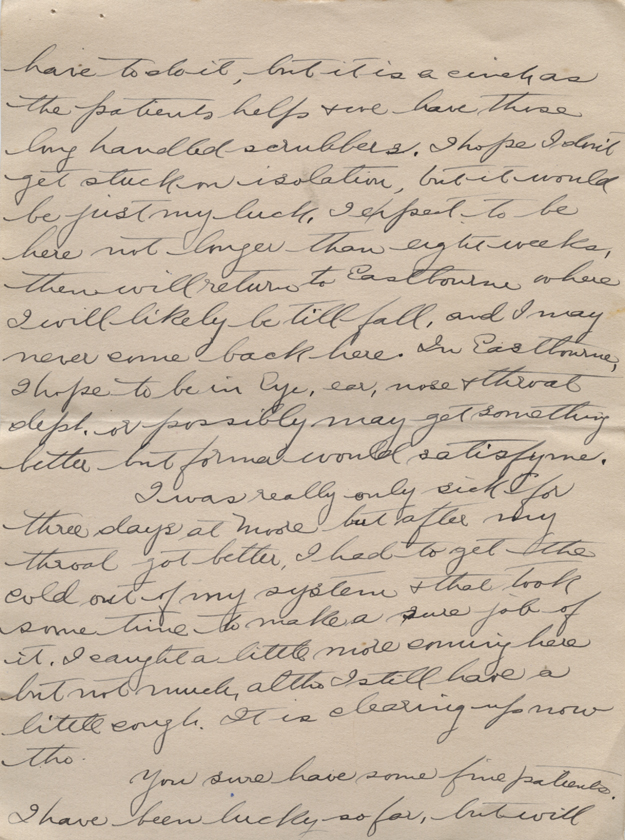 have to do it, but it is a cinch as
the patients helps & we have those
long handled scrubbers. I hope I don't
get stuck on isolation, but it would
be just my luck. I expect to be
here not longer than eight weeks,
then will return to Eastbourne where
I will likely be till fall, and I may
never come back here. In Eastbourne,
I hope to be in Eye, ear, nose & throat
dept. or possibly may get something
better but former would satisfy me.
I was really only sick for
three days at Moore but after my
throat got better, I had to get the
cold out of my system & that took
some time to make a sure job of
it. I caught a little more coming here
but not much, altho I still have a
little cough. It is clearing up now
tho.
You sure have some fine patients.
I have been lucky so far, but will